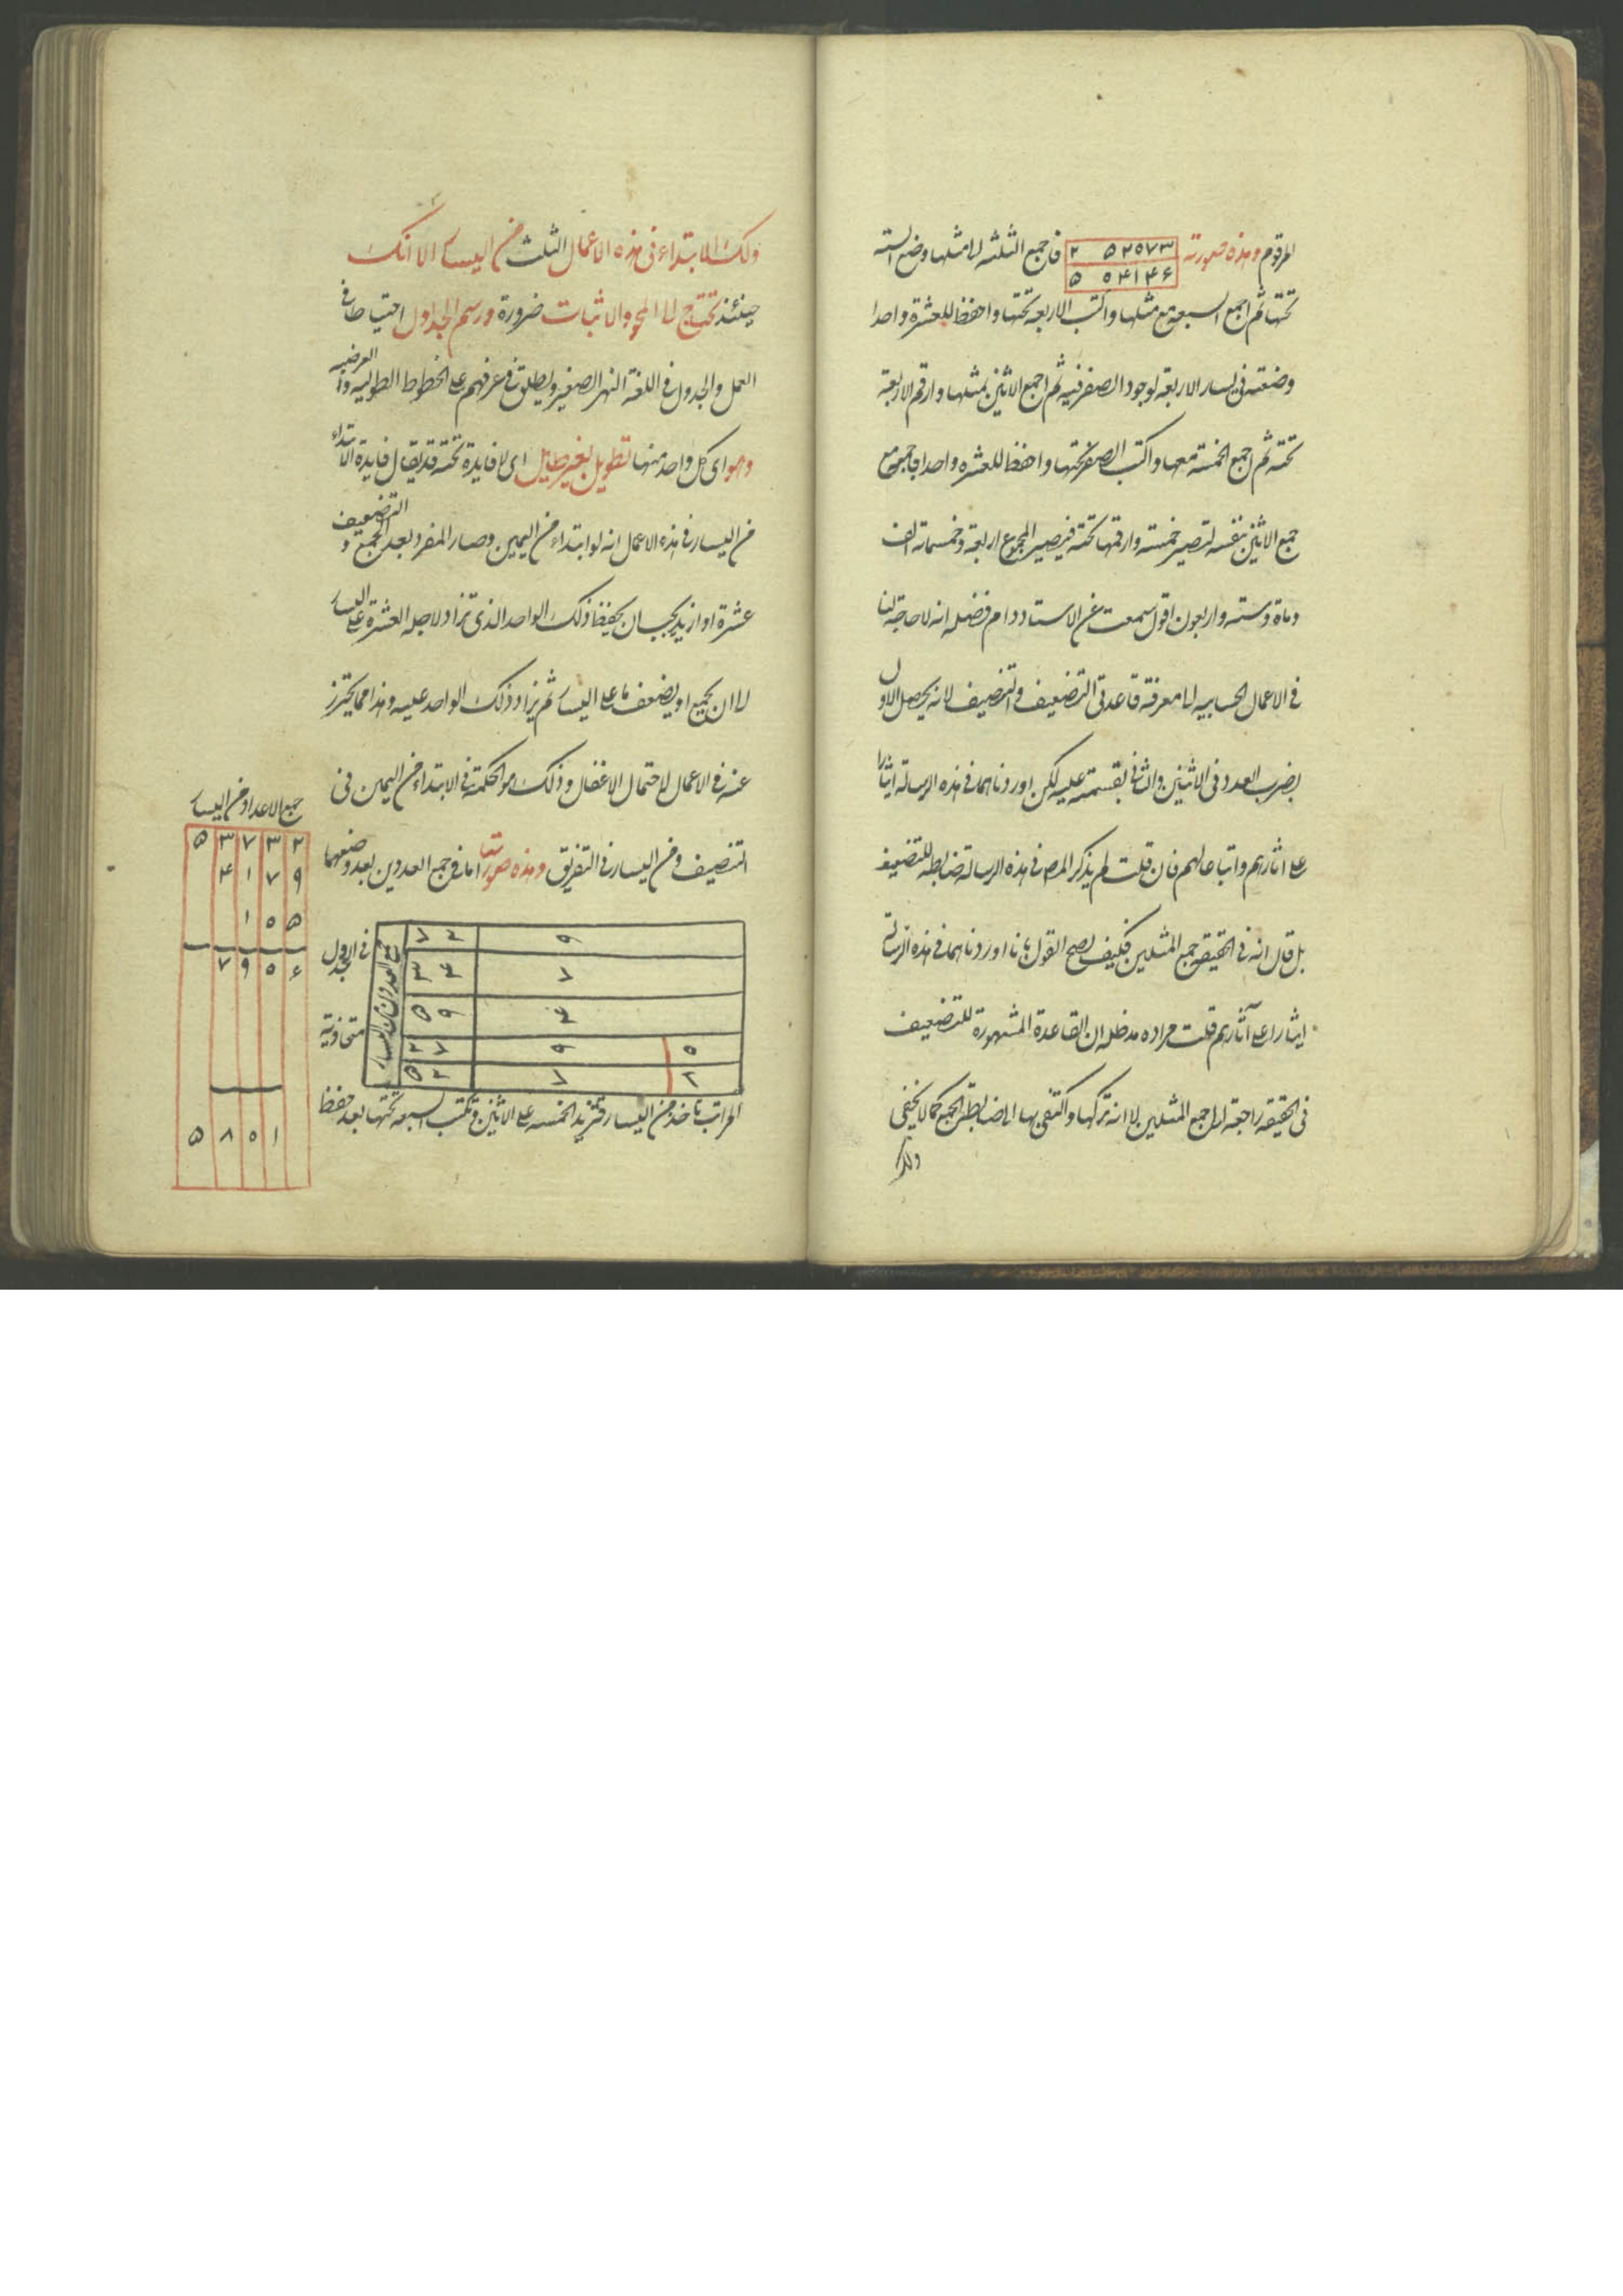 المرقوم وهذه صورته ٢ ٥٢٥٧٣ فاجمع الثلثه الى مثلها وضع الستة
٥ ٥٤١٤٦
تحتها ثم اجمع السبعه مع مثلها واكتب الاربعه تحتها واحفظ للعشرة واحدا
وضعته فى يسار الاربعة لوجود الصفر فيه ثم اجمع الاثنين بمثلها وارقم الاربعة
تحته ثم اجمع الخمسة معها واكتب الصفر تحتها واحفظ للعشره واحدا فاجمع مع
جمع الاثنين بنفسه لتصير خمسة وارقمها تحته فيصير المجموع اربعة وخمسمائة الف
ومأة وسته واربعون اقول سمعت عن الاستاد دام فضله انه لا حاجة لنا
فى الاعمال الحسابيه الى معرفة قاعدتى التضعيف والتنصيف لانه يحصل الاول
بضرب العدد فى الاثنين والثانى بقسمته عليه لكن اوردناهما فى هذه الرسالة ايثارا
على اثارهم واتباعا لهم فان قلت لم يذكر المص فى هذه الرسالة ضابطه للتضعيف
بل قال انه فى الحقيقة جمع المثلين فكيف يصح القول بانا اوردناهما فى هذه الرسالة
ايثارا على آثارهم قلت مراده مدظله ان القاعدة المشهورة للتضعيف
فى الحقيقه راجعة الى جمع المثلين لا انه تركها واكتفى بها الى ضابطة الجمع كما لا يخفى
ولك
ولك الابتداء فى هذه الاعمال الثلث من اليسار الا انك
حينئذ تحتاج الى المحو والاثبات ضرورة ورسم الجداول احتياطا فى
العمل والجدول فى اللغة النهر الصغير ويطلق فى عرفهم على الخطوط الطولية والعرضيه
وهو اى كل واحد منها تطويل بغير طايل اى لا فايدة تحته قد يقال فايدة الابتداء
من اليسار فى هذه الاعمال انه لو ابتداء من اليمين وصار المفرد بعد الجمع والتضعيف
عشرة او ازيد يجب ان يحفظ ذلك الواحد الذى تزاد لاجله العشرة على اليسار
الى ان يجمع او يضعف ما على اليسار ثم يزاد ذلك الواحد عليه وهذا مما يحترز
عنه فى الاعمال لاحتمال الاغفال وذلك هو الحكمة فى الابتداء من اليمين فى
التنصيف ومن اليسار فى التفريق وهذه صورتها اما فى جمع العددين بعد وضعهما
فى الجدول الاول
متحاذية
المراتب تاخذ من اليسار فتزيد الخمسه على الاثنين وتكتب السبعه تحتها بعد حفظ
جمع العددين من اليسار
٧ ٢ ٩
٣ ٤ ٧
٥ ٩ ٤
٢ ٧ ٩ ٥
٥ ٢ ٧ ٢
جمع الاعداد من اليسار
٥ ٣ ٧ ٣ ٢
٤ ١ ٧ ٩
١ ٥ ٥
٧ ٩ ٥ ٦
٥ ٨ ٥ ١